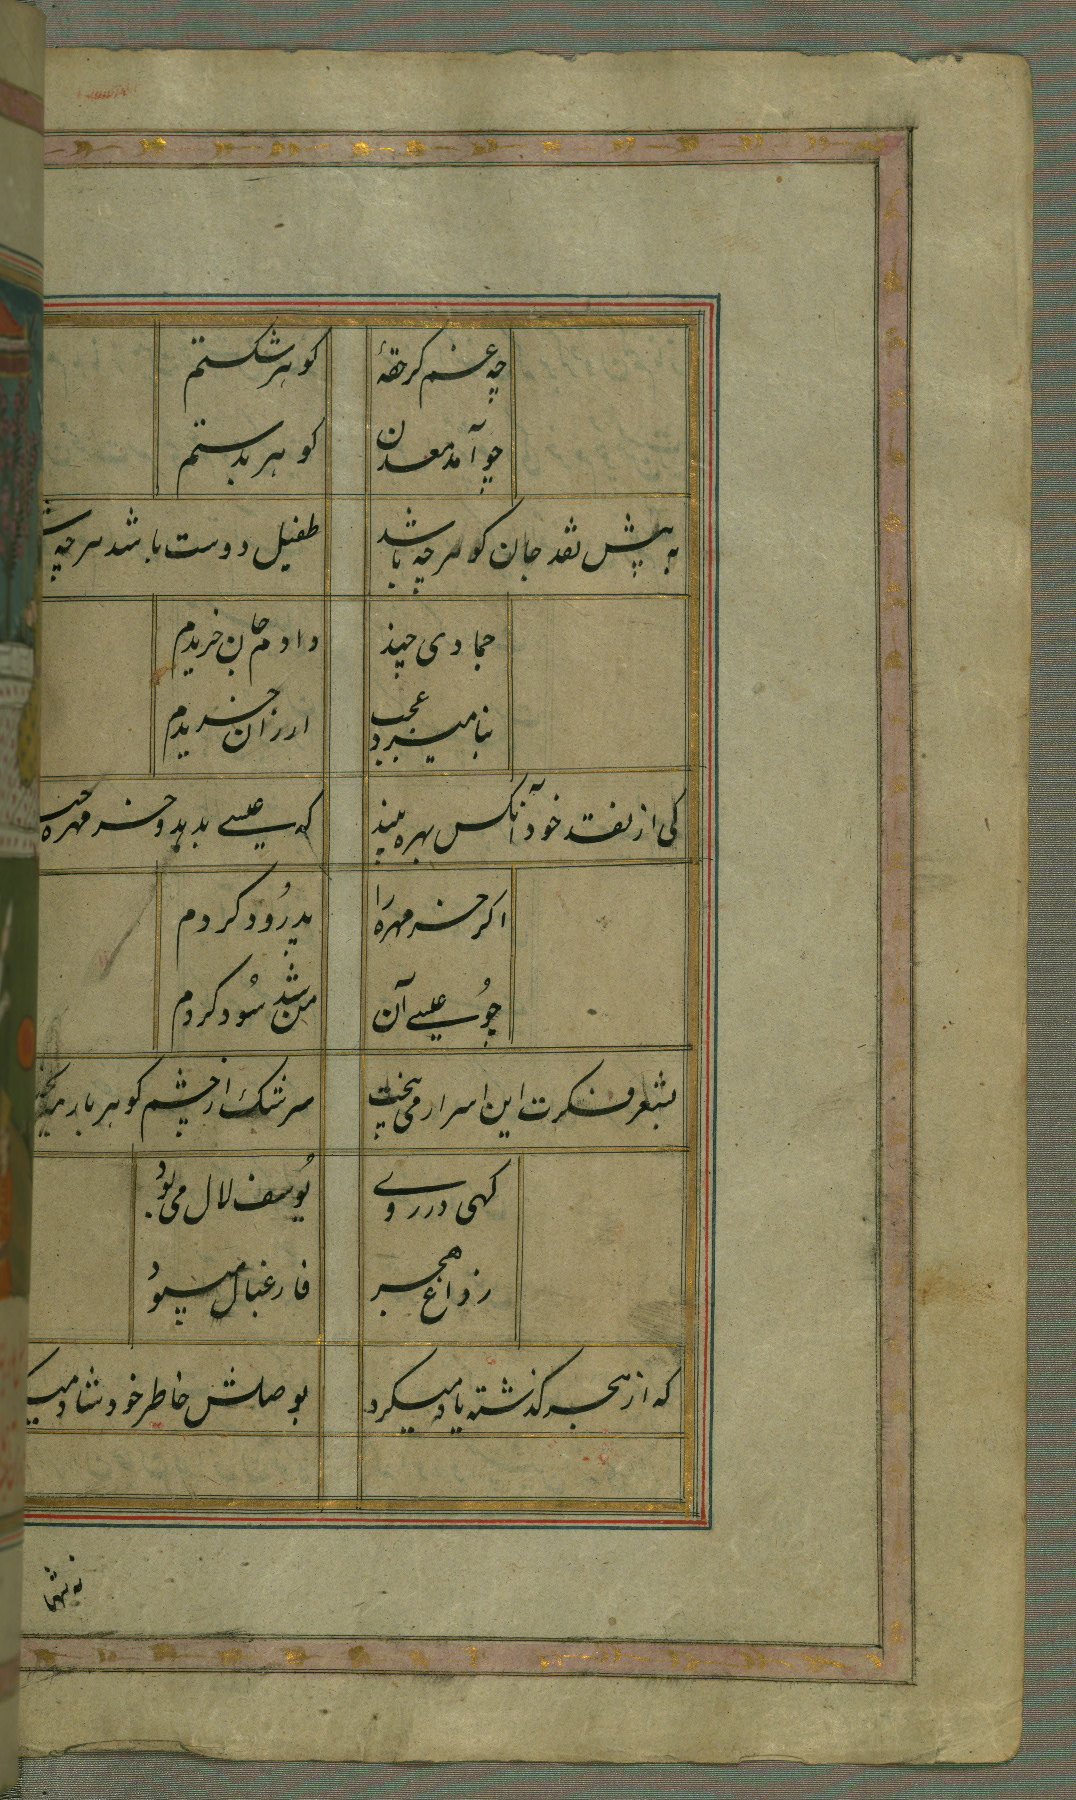 چه غم کر حقهٔ کوهر شکستم
چو آمد معدن کوهر بدستم
به پیش نقد جان کوهر چه باشد طفیل دوست باشد هر چه
جمادی چند دادم جان خریدم
بنامیزد عجب ارزان خریدم
کی از نقد خود آنکس بهره بیند که عیسی بدهد و خر مهره
اکر خر مهره را پدرود کردم
چو عیسی آن من شد سود کردم
بشعر فکرت این اسرار می پخت سرشک از چشم کوهر بار
کهی در روی یوسف لال می بود
ز داغ هجر فارغبال میبود
که از هجر کذشته یاد میکرد بوصلش خاطر خود شاد
نه تنها